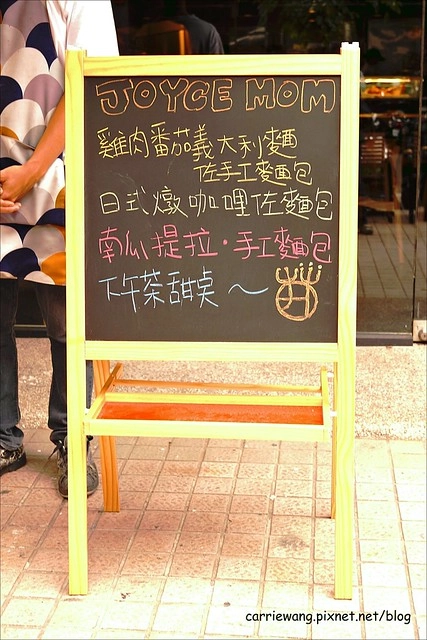 JOYCE MOM
雞肉番茄義大利麵
佐手工麥麵包
日式燉咖哩佐麵包
南瓜提拉・手工麵包
下午茶甜桌～
carriewang.pixnet.net/blog